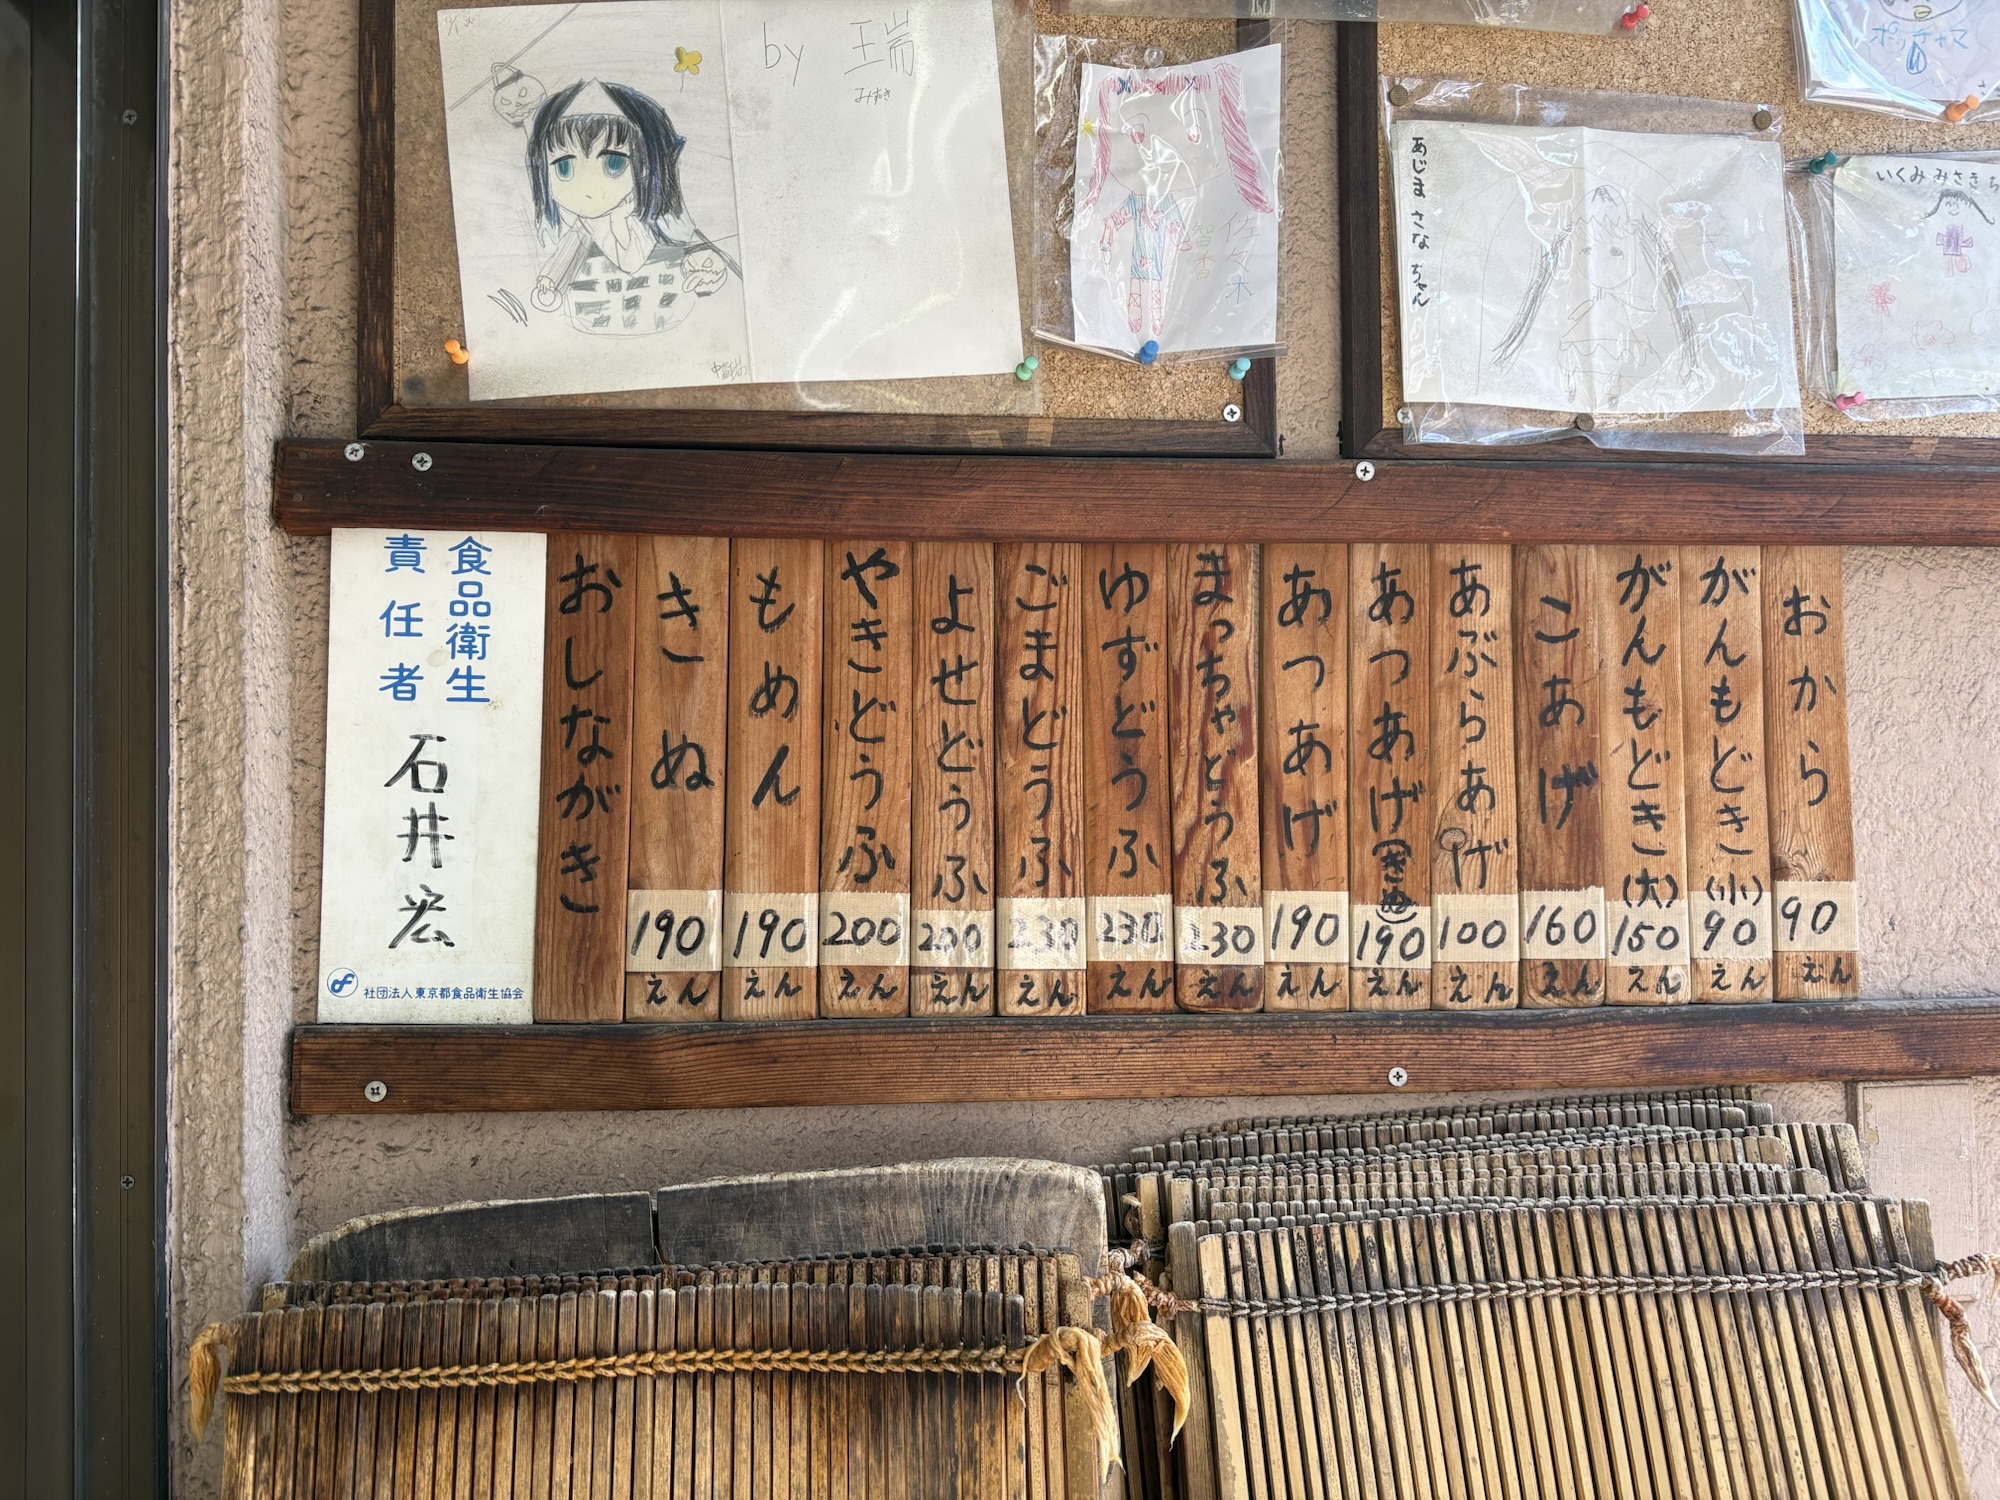 by 瑞
みずき
佐々木
智杏
あじま さな ぢゃん
ポッチャマ
いくみ みさき ち
食品衛生
責任者
石井宏
社団法人東京都食品衛生協会
おしながき
きぬ 190えん
もめん 190えん
やきどうふ 200えん
よせどうふ 200えん
ごまどうふ 230えん
ゆずどうふ 230えん
まっちゃどうふ 230えん
あつあげ 190えん
あつあげ(きぬ) 190えん
あぶらあげ 100えん
こあげ 160えん
がんもどき(大) 150えん
がんもどき(小) 90えん
おから 90えん